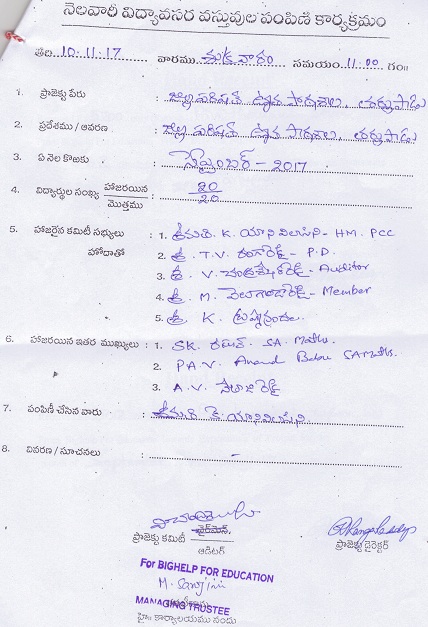 నెలవారీ విద్యావసర వస్తువుల పంపిణీ కార్యక్రమం
తేది 10-11-17 వారము శుక్రవారం సమయం 11-00 గం॥
1. ప్రాజెక్టు పేరు : జిల్లా పరిషత్ ఉన్నత పాఠశాల,
2. ప్రదేశము / ఆవరణ : జిల్లా పరిషత్ ఉన్నత పాఠశాల,
3. ఏ నెల కొఱకు : సెప్టెంబర్ - 2017
4. విద్యార్థుల సంఖ్య హాజరయిన / మొత్తము : 20 / 20
5. హాజరైన కమిటీ సభ్యులు : 1. శ్రీమతి K. - HM. PCC
హోదాతో 2. శ్రీ. T.V. రంగారెడ్డి - P.D.
3. శ్రీ. V. - Auditor
4. శ్రీ. M. - Member
5. శ్రీ. K.
6. హాజరయిన ఇతర ముఖ్యులు : 1. SK. SA. Maths.
2. P.A.V. Anand Babu SA Maths.
3. A.V.
7. పంపిణీ చేసిన వారు : శ్రీమతి కె.
8. వివరణ / సూచనలు : -
ప్రాజెక్టు కమిటీ ఛైర్మెన్.
ఆడిటర్
ప్రాజెక్టు డైరెక్టర్
For BIGHELP FOR EDUCATION
M. Sarojini
MANAGING TRUSTEE
కార్యాలయము నందు